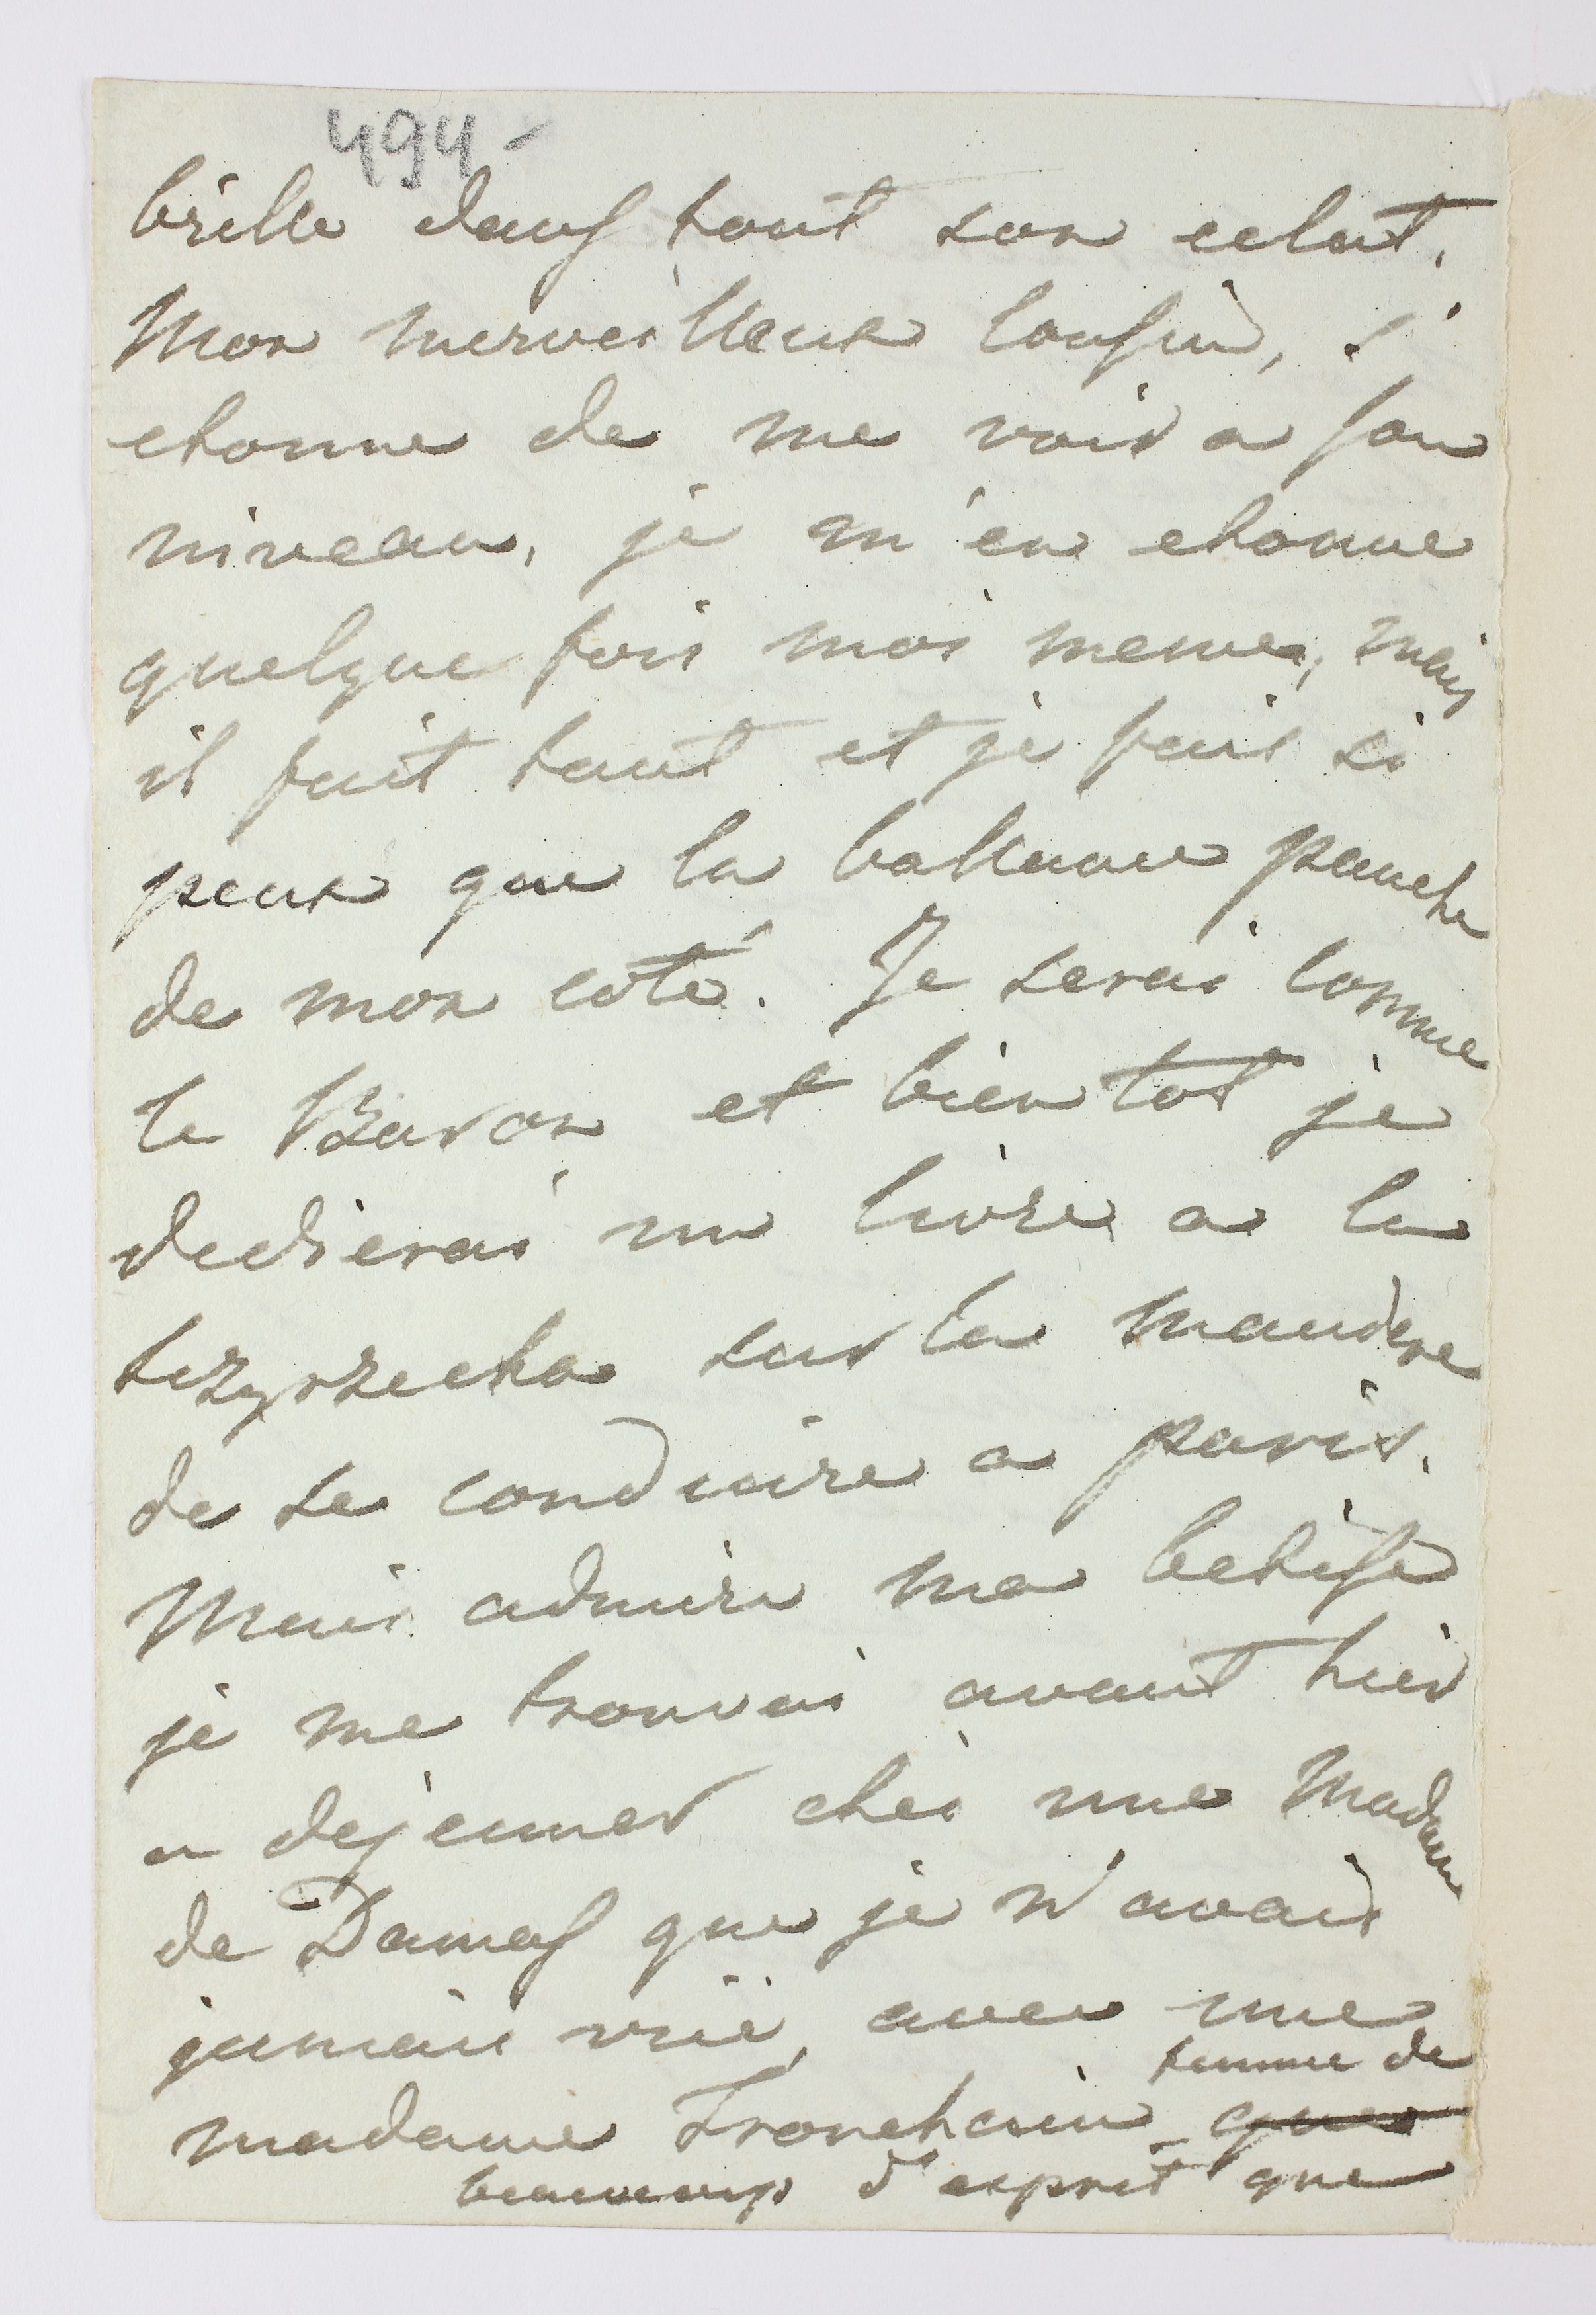 494-
brille dans tout son eclat.
Mon merveilleux Cousin, s'
etonne de me voir a son
niveau, je m'en etonne
quelque fois moi meme, mais
il fait tant et je fais si
peux que la ballance panche
de mon coté. Je serai comme
le Baron et bien tot je
dedierai un livre a la
sur la maniere
de se conduire a paris.
Mais admire ma betise
je me trouvai avant hier
a dejeuner chez une Madame
de Damas que je n'avais
jamais vüe, avec une
madame Tronchain femme de
beaucoup d'esprit que